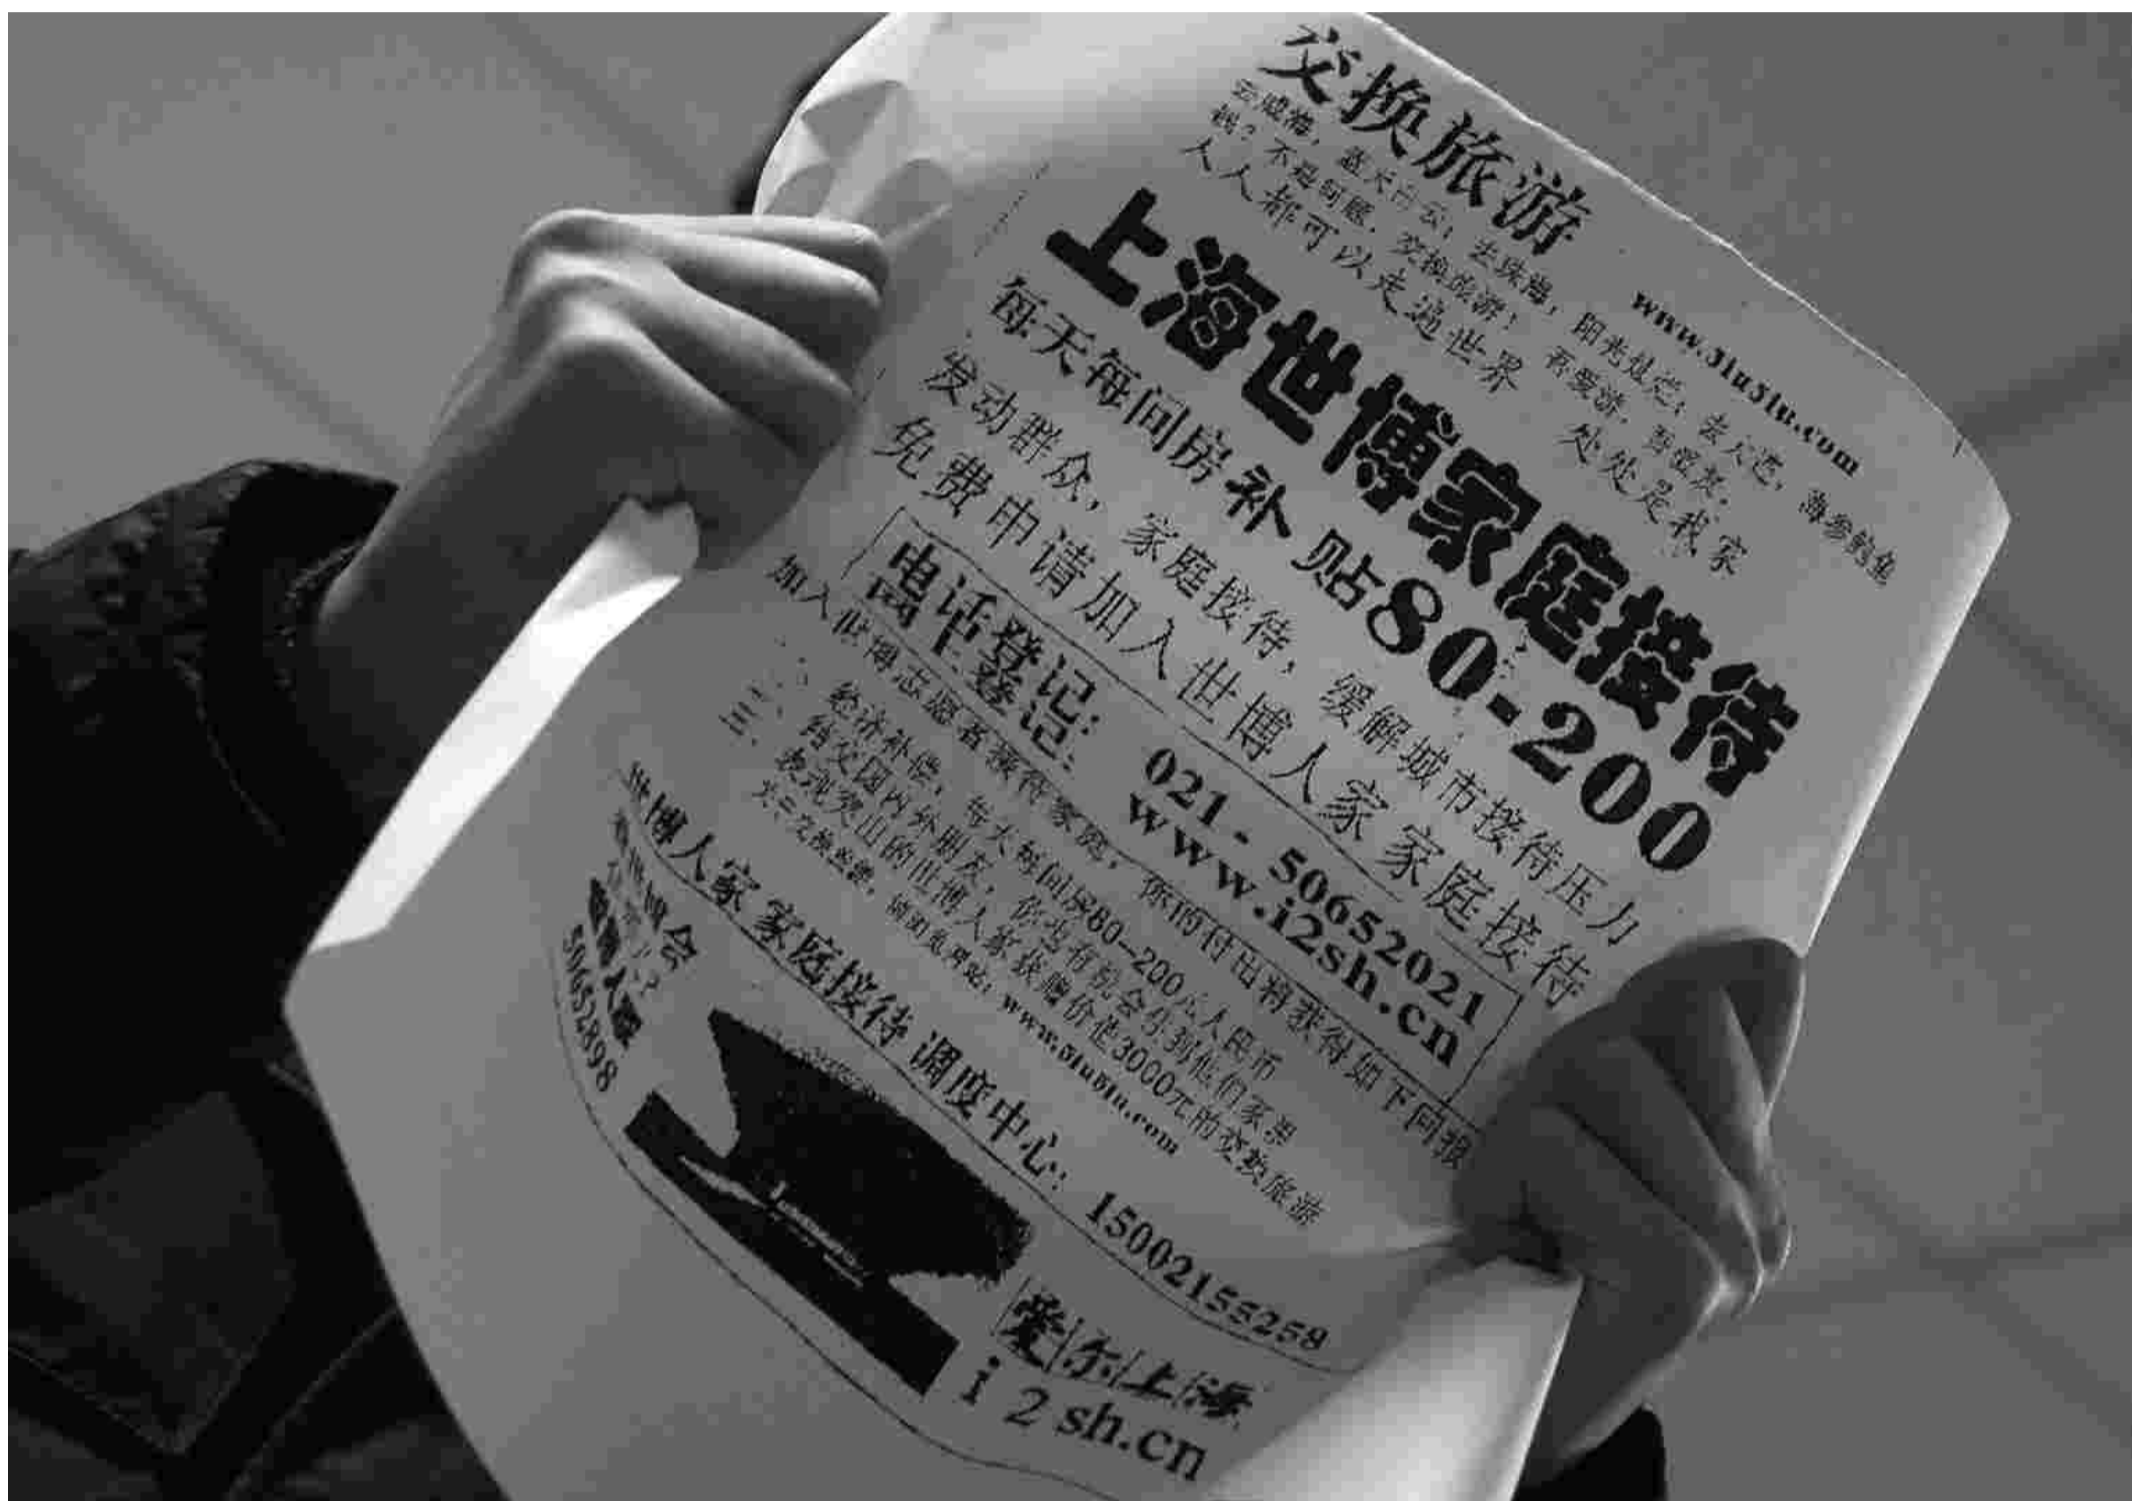 交换旅游
www.51u51u.com
去威海，蓝天白云；去珠海，阳光灿烂；去大连，海参鲍鱼
钱？不是问题，交换旅游！吾爱游，吾爱我，
人人都可以走遍世界 处处是我家
上海世博家庭接待
每天每间房补贴80-200
发动群众，家庭接待，缓解城市接待压力
免费申请加入世博人家 家庭接待
电话登记： 021-50652021
www.i2sh.cn
加入世博志愿者接待家庭，你的付出将获得如下回报
一、经济补偿，每天每间房80-200元人民币
二、结交国内外朋友，你也有机会住到他们家里
三、表现突出的世博人家获赠价值3000元的交换旅游
关于交换旅游，请浏览网站：www.51u51u.com
世博人家 家庭接待 调度中心： 15002155258
看世博会
住哪儿？
世博人家
50652898
爱尔上海
i2sh.cn